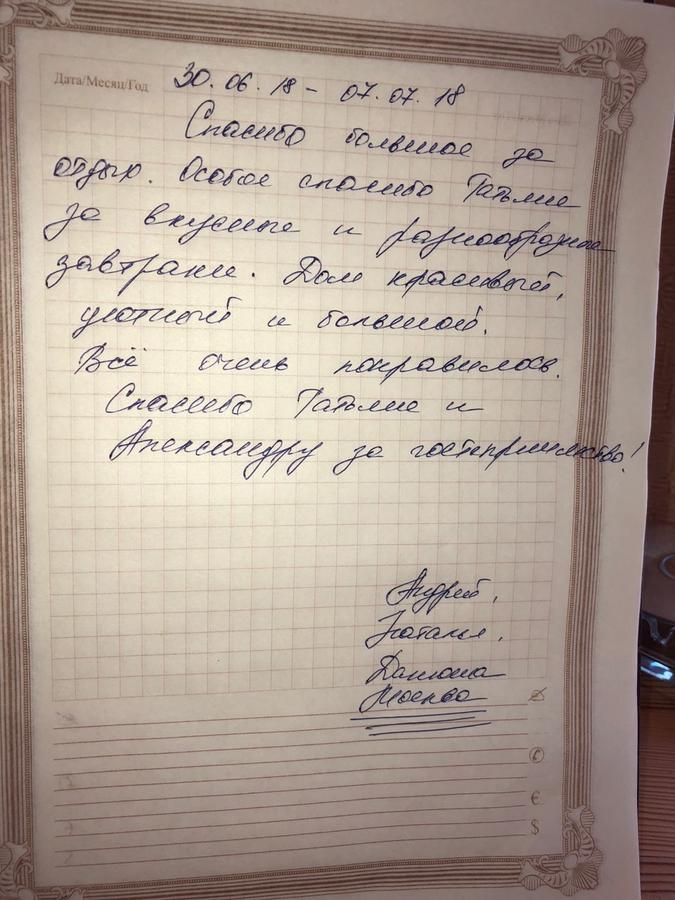 Дата/Месяц/Год 30.06.18 - 07.07.18
Спасибо большое за
отдых. Особое спасибо Татьяне
за вкусные и разнообразные
завтраки. Дом красивый,
уютный и большой.
Всё очень понравилось.
Спасибо Татьяне и
Александру за гостеприимство!
Андрей,
Наталья,
Москва
€
$